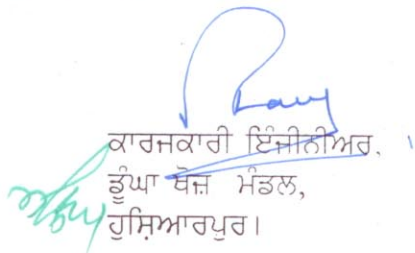 ਕਾਰਜਕਾਰੀ ਇੰਜੀਨੀਅਰ,
ਡੂੰਘਾ ਖੋਜ਼ ਮੰਡਲ,
ਹੁਸ਼ਿਆਰਪੁਰ।